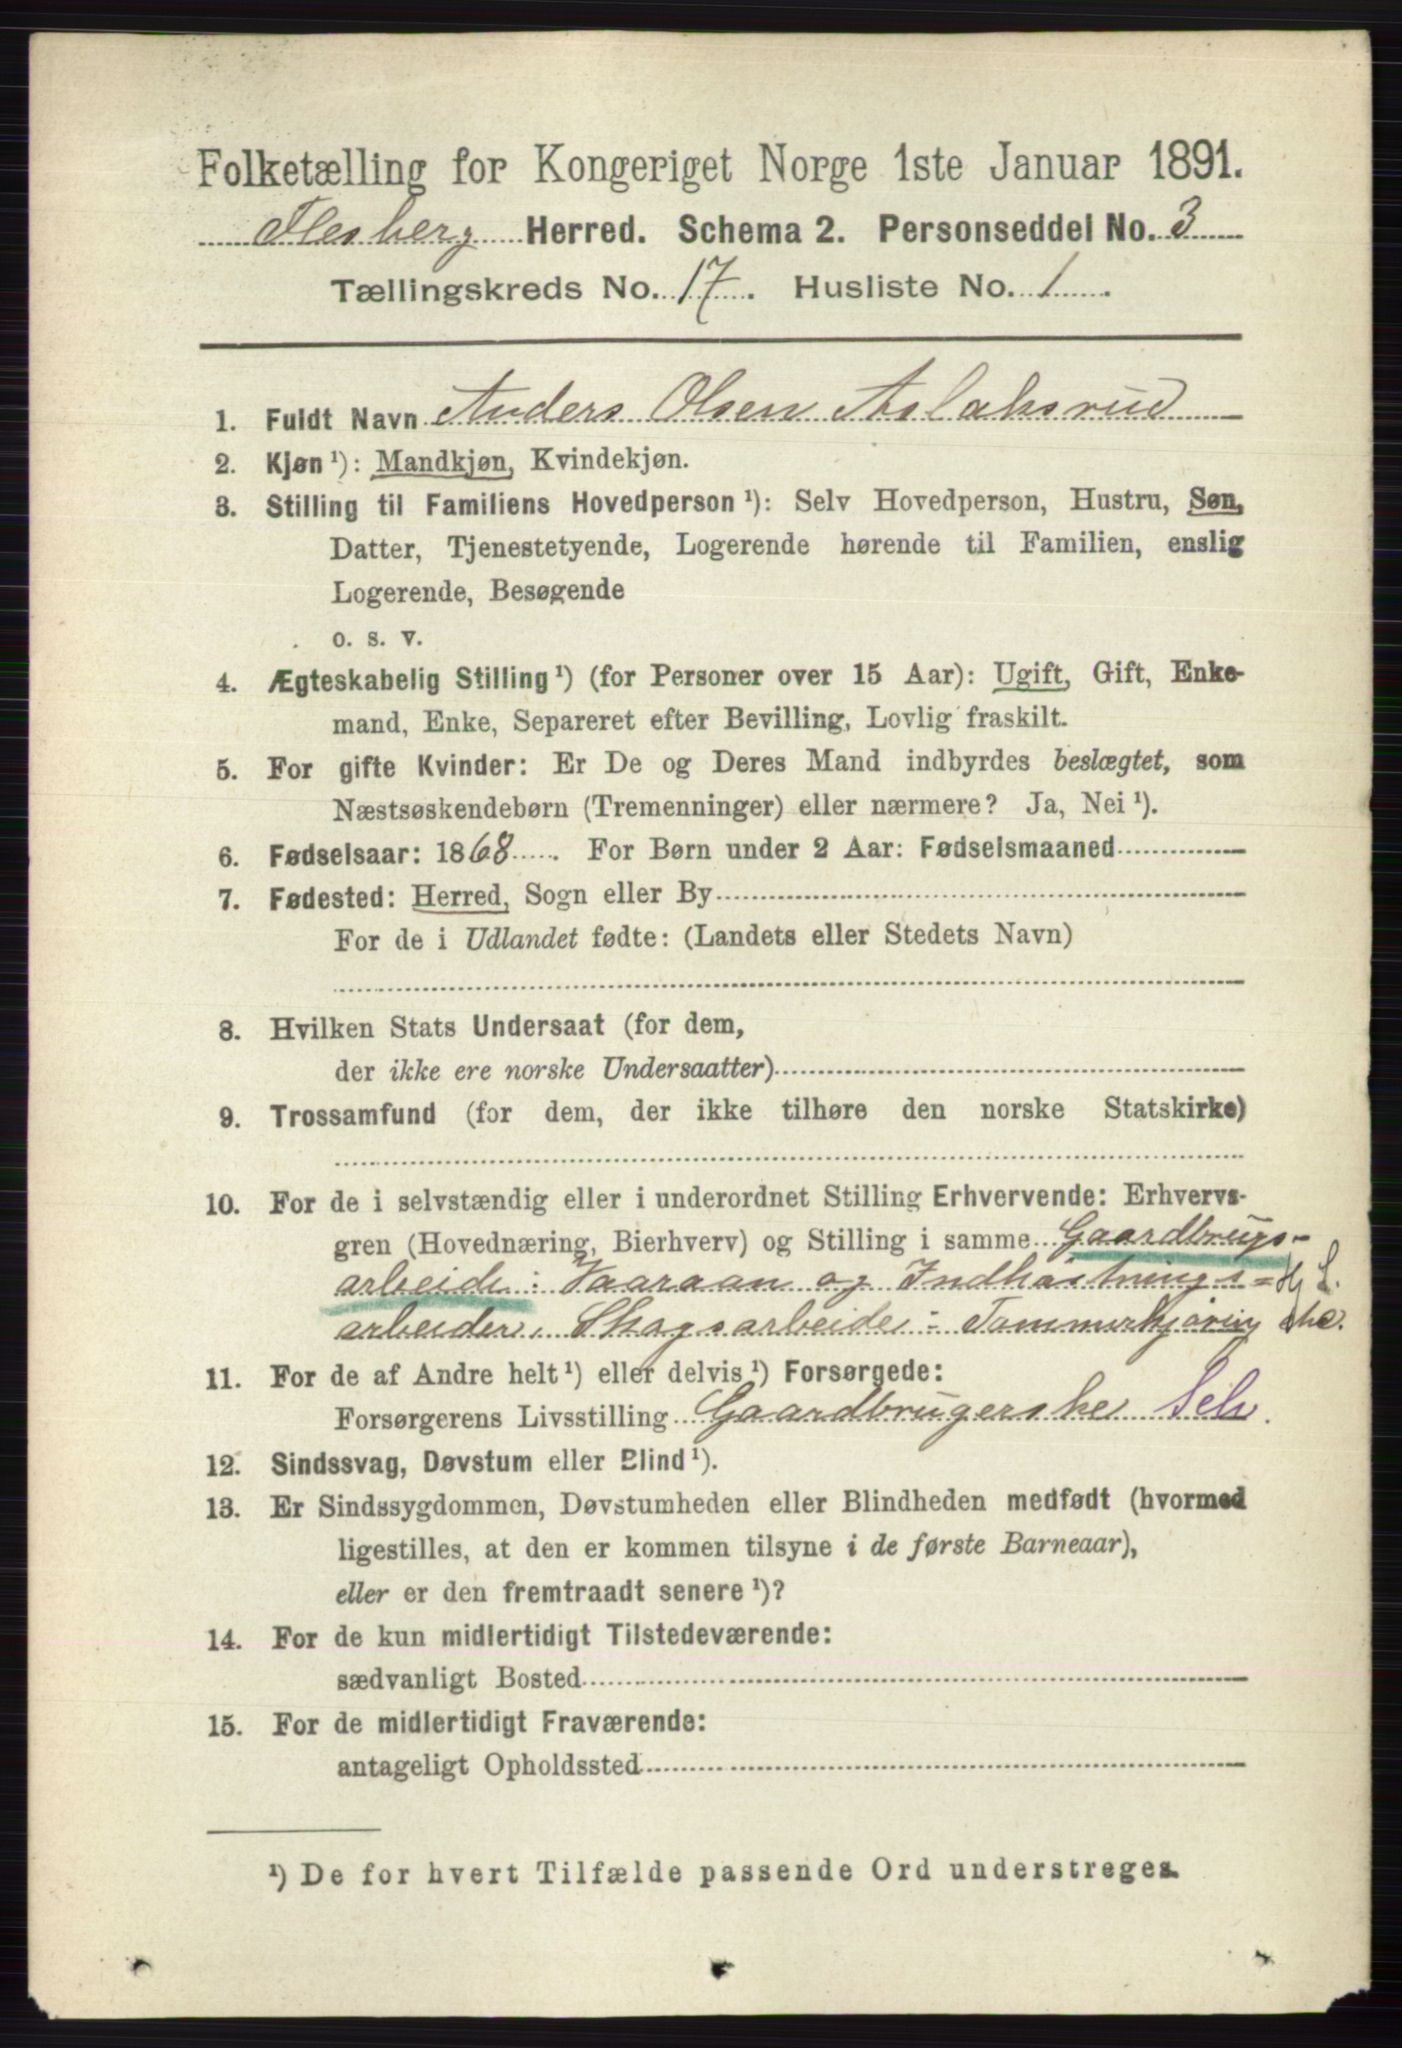 Folketælling for Kongeriget Norge 1ste Januar 1891.
Flesberg Herred. Schema 2. Personseddel No. 3
Tællingskreds No. 17. Husliste No. 1.
1. Fuldt Navn Anders Olsen Aslaksrud
2. Kjøn ¹): Mandkjøn, Kvindekjøn.
3. Stilling til Familiens Hovedperson ¹): Selv Hovedperson, Hustru, Søn,
Datter, Tjenestetyende, Logerende hørende til Familien, enslig
Logerende, Besøgende
o. s. v.
4. Ægteskabelig Stilling ¹) (for Personer over 15 Aar): Ugift, Gift, Enke-
mand, Enke, Separeret efter Bevilling, Lovlig fraskilt.
5. For gifte Kvinder: Er De og Deres Mand indbyrdes beslægtet, som
Næstsøskendebørn (Tremenninger) eller nærmere? Ja, Nei ¹).
6. Fødselsaar: 1868. For Børn under 2 Aar: Fødselsmaaned
7. Fødested: Herred, Sogn eller By
For de i Udlandet fødte: (Landets eller Stedets Navn)
8. Hvilken Stats Undersaat (for dem,
der ikke ere norske Undersaatter)
9. Trossamfund (for dem, der ikke tilhøre den norske Statskirke)
10. For de i selvstændig eller i underordnet Stilling Erhvervende: Erhvervs-
gren (Hovednæring, Bierhverv) og Stilling i samme Gaardbrugs-
arbeide: Vaaraan og Indhøstnings=
arbeider, Skogsarbeide: Tømmerkjøring
11. For de af Andre helt ¹) eller delvis ¹) Forsørgede:
Forsørgerens Livsstilling Gaardbrugerske Selv.
12. Sindssvag, Døvstum eller Blind ¹).
13. Er Sindssygdommen, Døvstumheden eller Blindheden medfødt (hvormed
ligestilles, at den er kommen tilsyne i de første Barneaar),
eller er den fremtraadt senere ¹)?
14. For de kun midlertidigt Tilstedeværende:
sædvanligt Bosted
15. For de midlertidigt Fraværende:
antageligt Opholdssted
¹) De for hvert Tilfælde passende Ord understreges.